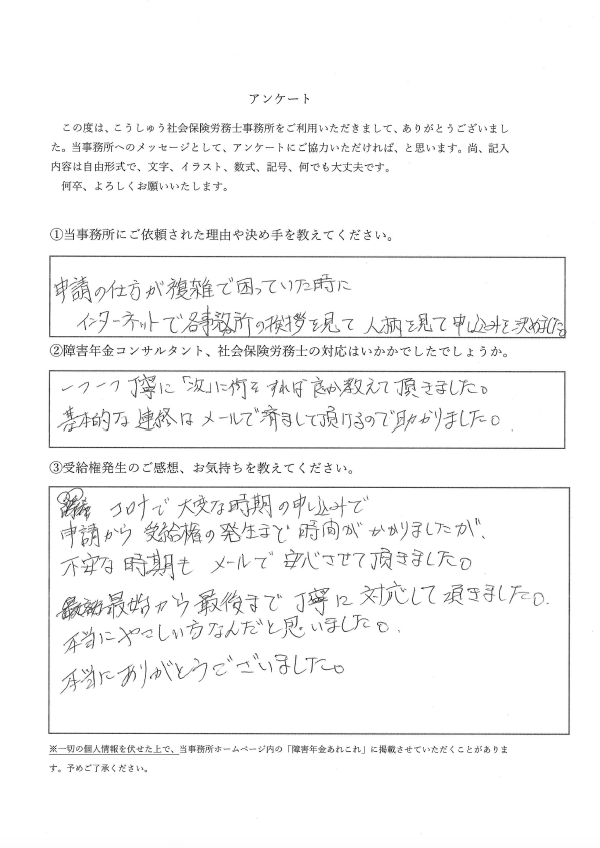 アンケート
この度は、こうしゅう社会保険労務士事務所をご利用いただきまして、ありがとうございまし
た。当事務所へのメッセージとして、アンケートにご協力いただければ、と思います。尚、記入
内容は自由形式で、文字、イラスト、数式、記号、何でも大丈夫です。
何卒、よろしくお願いいたします。
①当事務所にご依頼された理由や決め手を教えてください。
申請の仕方が複雑で困っていた時に
インターネットで各事務所の挨拶を見て人柄を見て申し込みを決めました。
②障害年金コンサルタント、社会保険労務士の対応はいかかでしたでしょうか。
一つ一つ丁寧に「次」に何をすれば良か教えて頂きました。
基本的な連絡はメールで済まして頂けるので助かりました。
③受給権発生のご感想、お気持ちを教えてください。
コロナで大変な時期の申し込みで
申請から受給権の発生まで時間がかかりましたが、
不安な時期もメールで安心させて頂きました。
最始から最後まで丁寧に対応して頂きました。
本当にやさしい方なんだと思いました。
本当にありがとうございました。
※一切の個人情報を伏せた上で、当事務所ホームページ内の「障害年金あれこれ」に掲載させていただくことがありま
す。予めご了承ください。